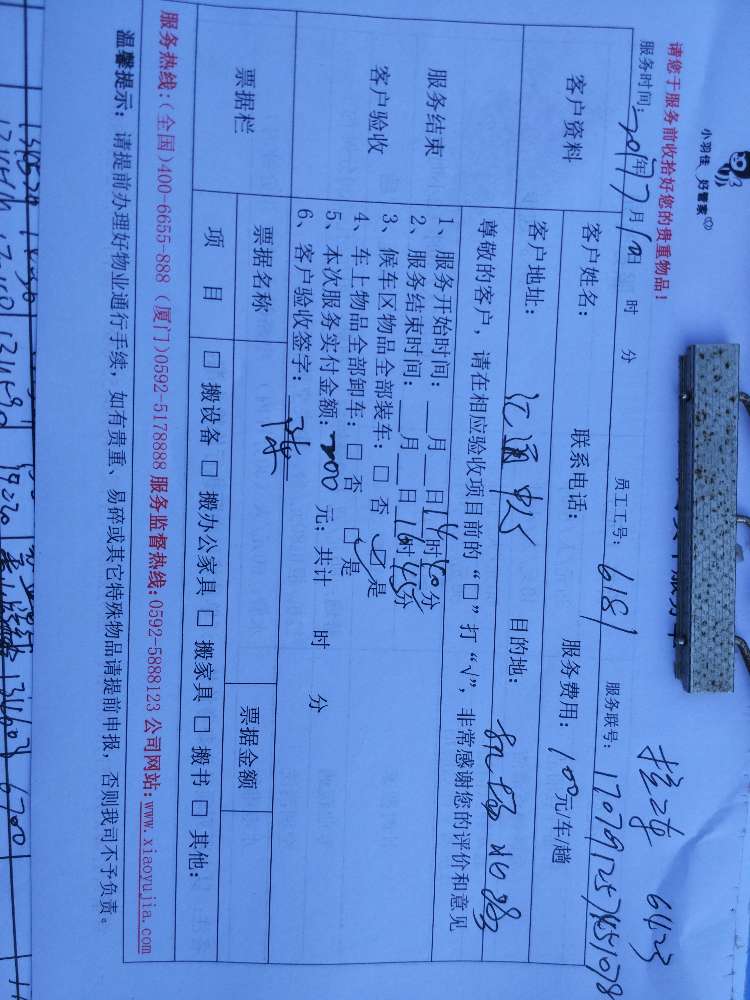 小羽佳 好管家
请您于服务前收拾好您的贵重物品！
6423
服务时间：2017年7月10日 时 分 员工工号：6181 服务联号：
客户资料
客户姓名： 联系电话： 服务费用：100元/车/趟
客户地址：汇通中心 目的地：机场北路
尊敬的客户，请在相应验收项目前的“□”打“√”，非常感谢您的评价和意见
服务结束
客户验收
1、服务开始时间：__月__日14时40分
2、服务结束时间：__月__日16时45分
3、候车区物品全部装车：□ 否 ☑ 是
4、车上物品全部卸车：□ 否 ☑ 是
5、本次服务实付金额：200 元；共计 时 分
6、客户验收签字：
票据栏
票据名称 票据金额
项 目 □ 搬设备 □ 搬办公家具 □ 搬家具 □ 搬书 □ 其他：
服务热线：(全国)400-6655-888 (厦门)0592-5178888 服务监督热线：0592-5888123 公司网站：www.xiaoyujia.com
温馨提示：请提前办理好物业通行手续，如有贵重、易碎或其它特殊物品请提前申报，否则我司不予负责。